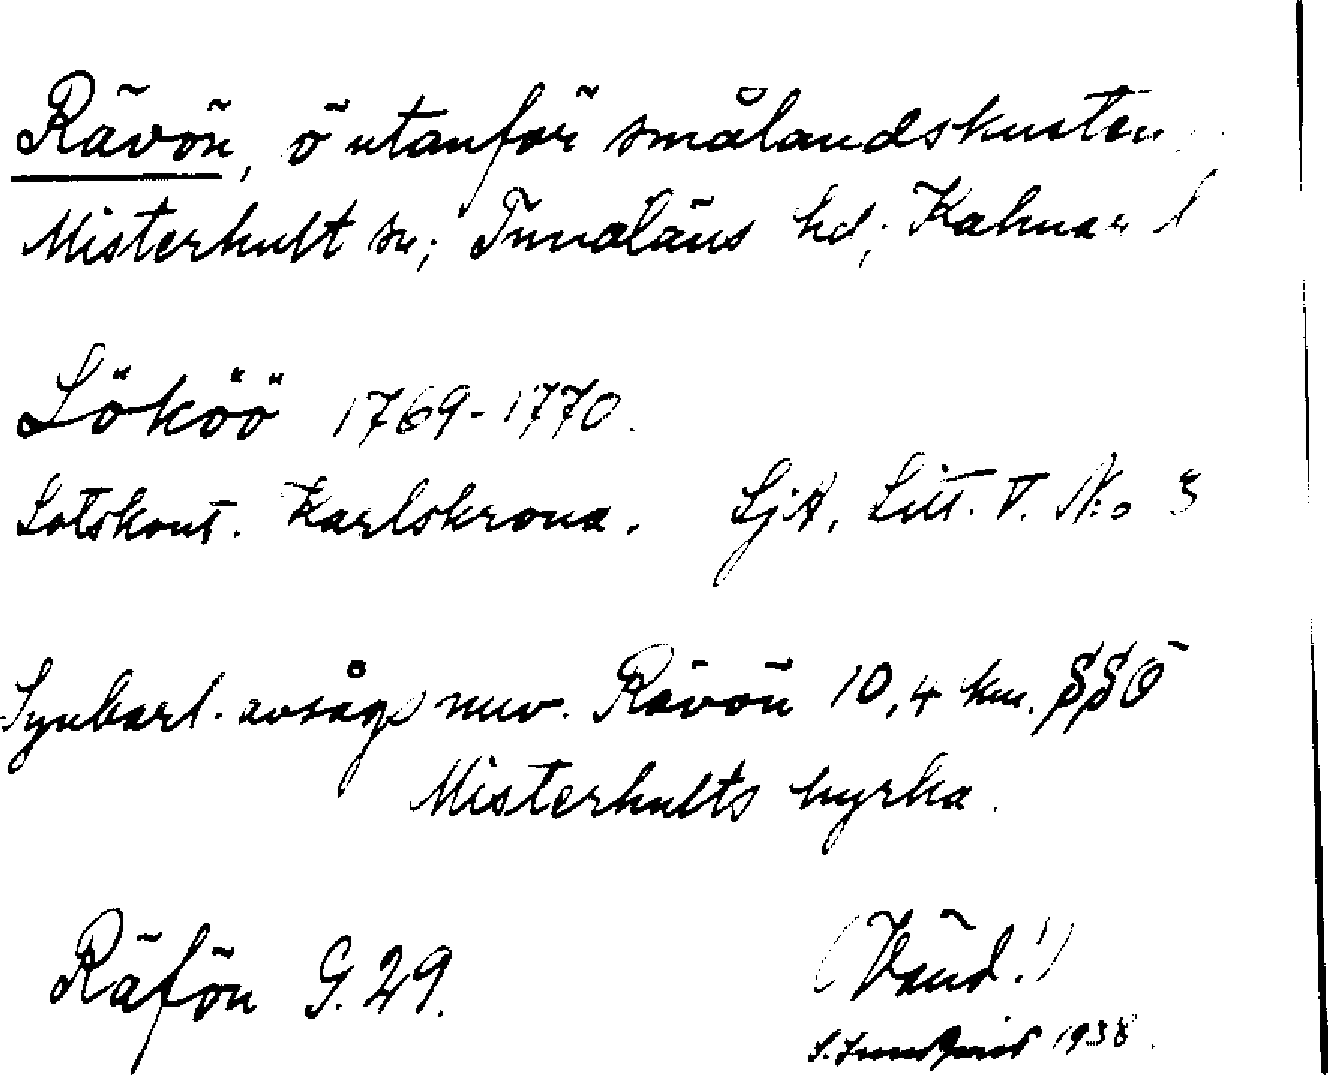 Rävön, ö utanför smålandskusten
Misterhult sn; Tunaläns hd; Kalmar l
Lököö 1769-1770.
Lotskont. Karlskrona. SjA, Litt. V. No 3
Synbarl. avsågs nuv. Rävön 10,4 km. SSÖ
Misterhults kyrka.
Räfön G. 29.
(Vänd!)
S. Lundqvist 1938.